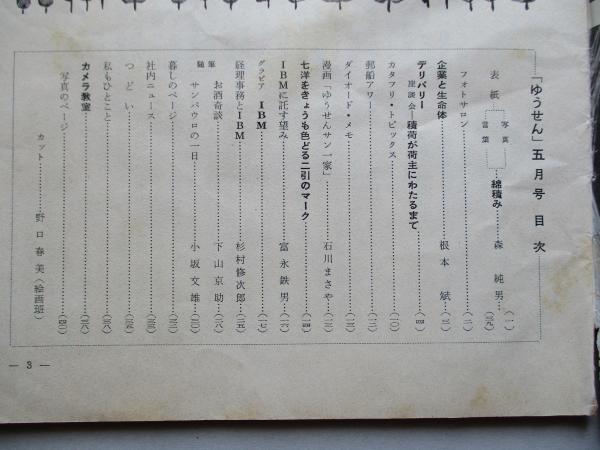 「ゆうせん」五月号 目次
表紙 写真 綿積み 森 純男 (一)
言葉 (三九)
フォトサロン (二)
企業と生命体 根本 斌 (三)
デリバリー 座談会 積荷が荷主にわたるまで (四)
カタフリ・トピックス (一〇)
郵船アワー (一二)
ダイオード・メモ (一三)
漫画「ゆうせんサン一家」 石川まさや (一三)
七洋をきょうも色どる二引のマーク (一四)
IBMに託す望み 富永鉄男 (一六)
グラビア IBM (一七)
経理事務とIBM 杉村修次郎 (二五)
随筆 お酒奇談 下山京助 (二八)
サンパウロの一日 小坂文雄 (三〇)
暮しのページ (三二)
社内ニュース (三三)
つどい (三五)
私もひとこと (三六)
カメラ教室 (三八)
写真のページ (四〇)
カット 野口春美(絵画班)
— 3 —